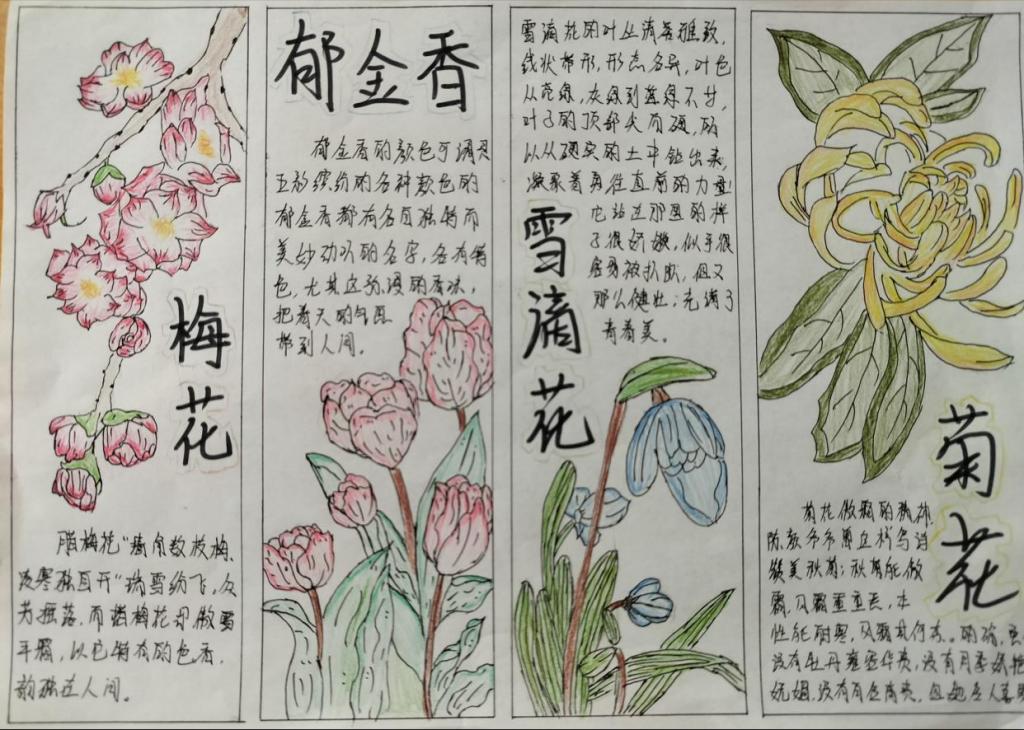 梅花
腊梅花"墙角数枝梅,
凌寒独自开"瑞雪纷飞,众
芳摇落,而腊梅花却傲雪
斗霜,以它特有的色香,
韵独立人间。
郁金香
郁金香的颜色可谓是
五彩缤纷的各种颜色的
郁金香都有各自独特而
美妙动听的名字,各有特
色,尤其这弥漫的香味,
把春天的气息
带到人间。
雪滴花的叶丛清秀雅致,
线状带形,形态各异,叶色
从花绿,灰绿到蓝绿不等,
叶子的顶部尖而硬,所
以从硬实的土中钻出来,
凝聚着勇往直前的力量!
它站在那里的样
子很娇嫩,似乎很
容易被扒断,但又
那么健壮;充满了
青春美。
雪滴花
菊花
菊花傲霜的精神,
陈毅
秋菊能傲
霜,风霜重重恶,本
性能耐寒,风霜其奈何。的确,
没有牡丹雍容华贵,没有月季妖艳